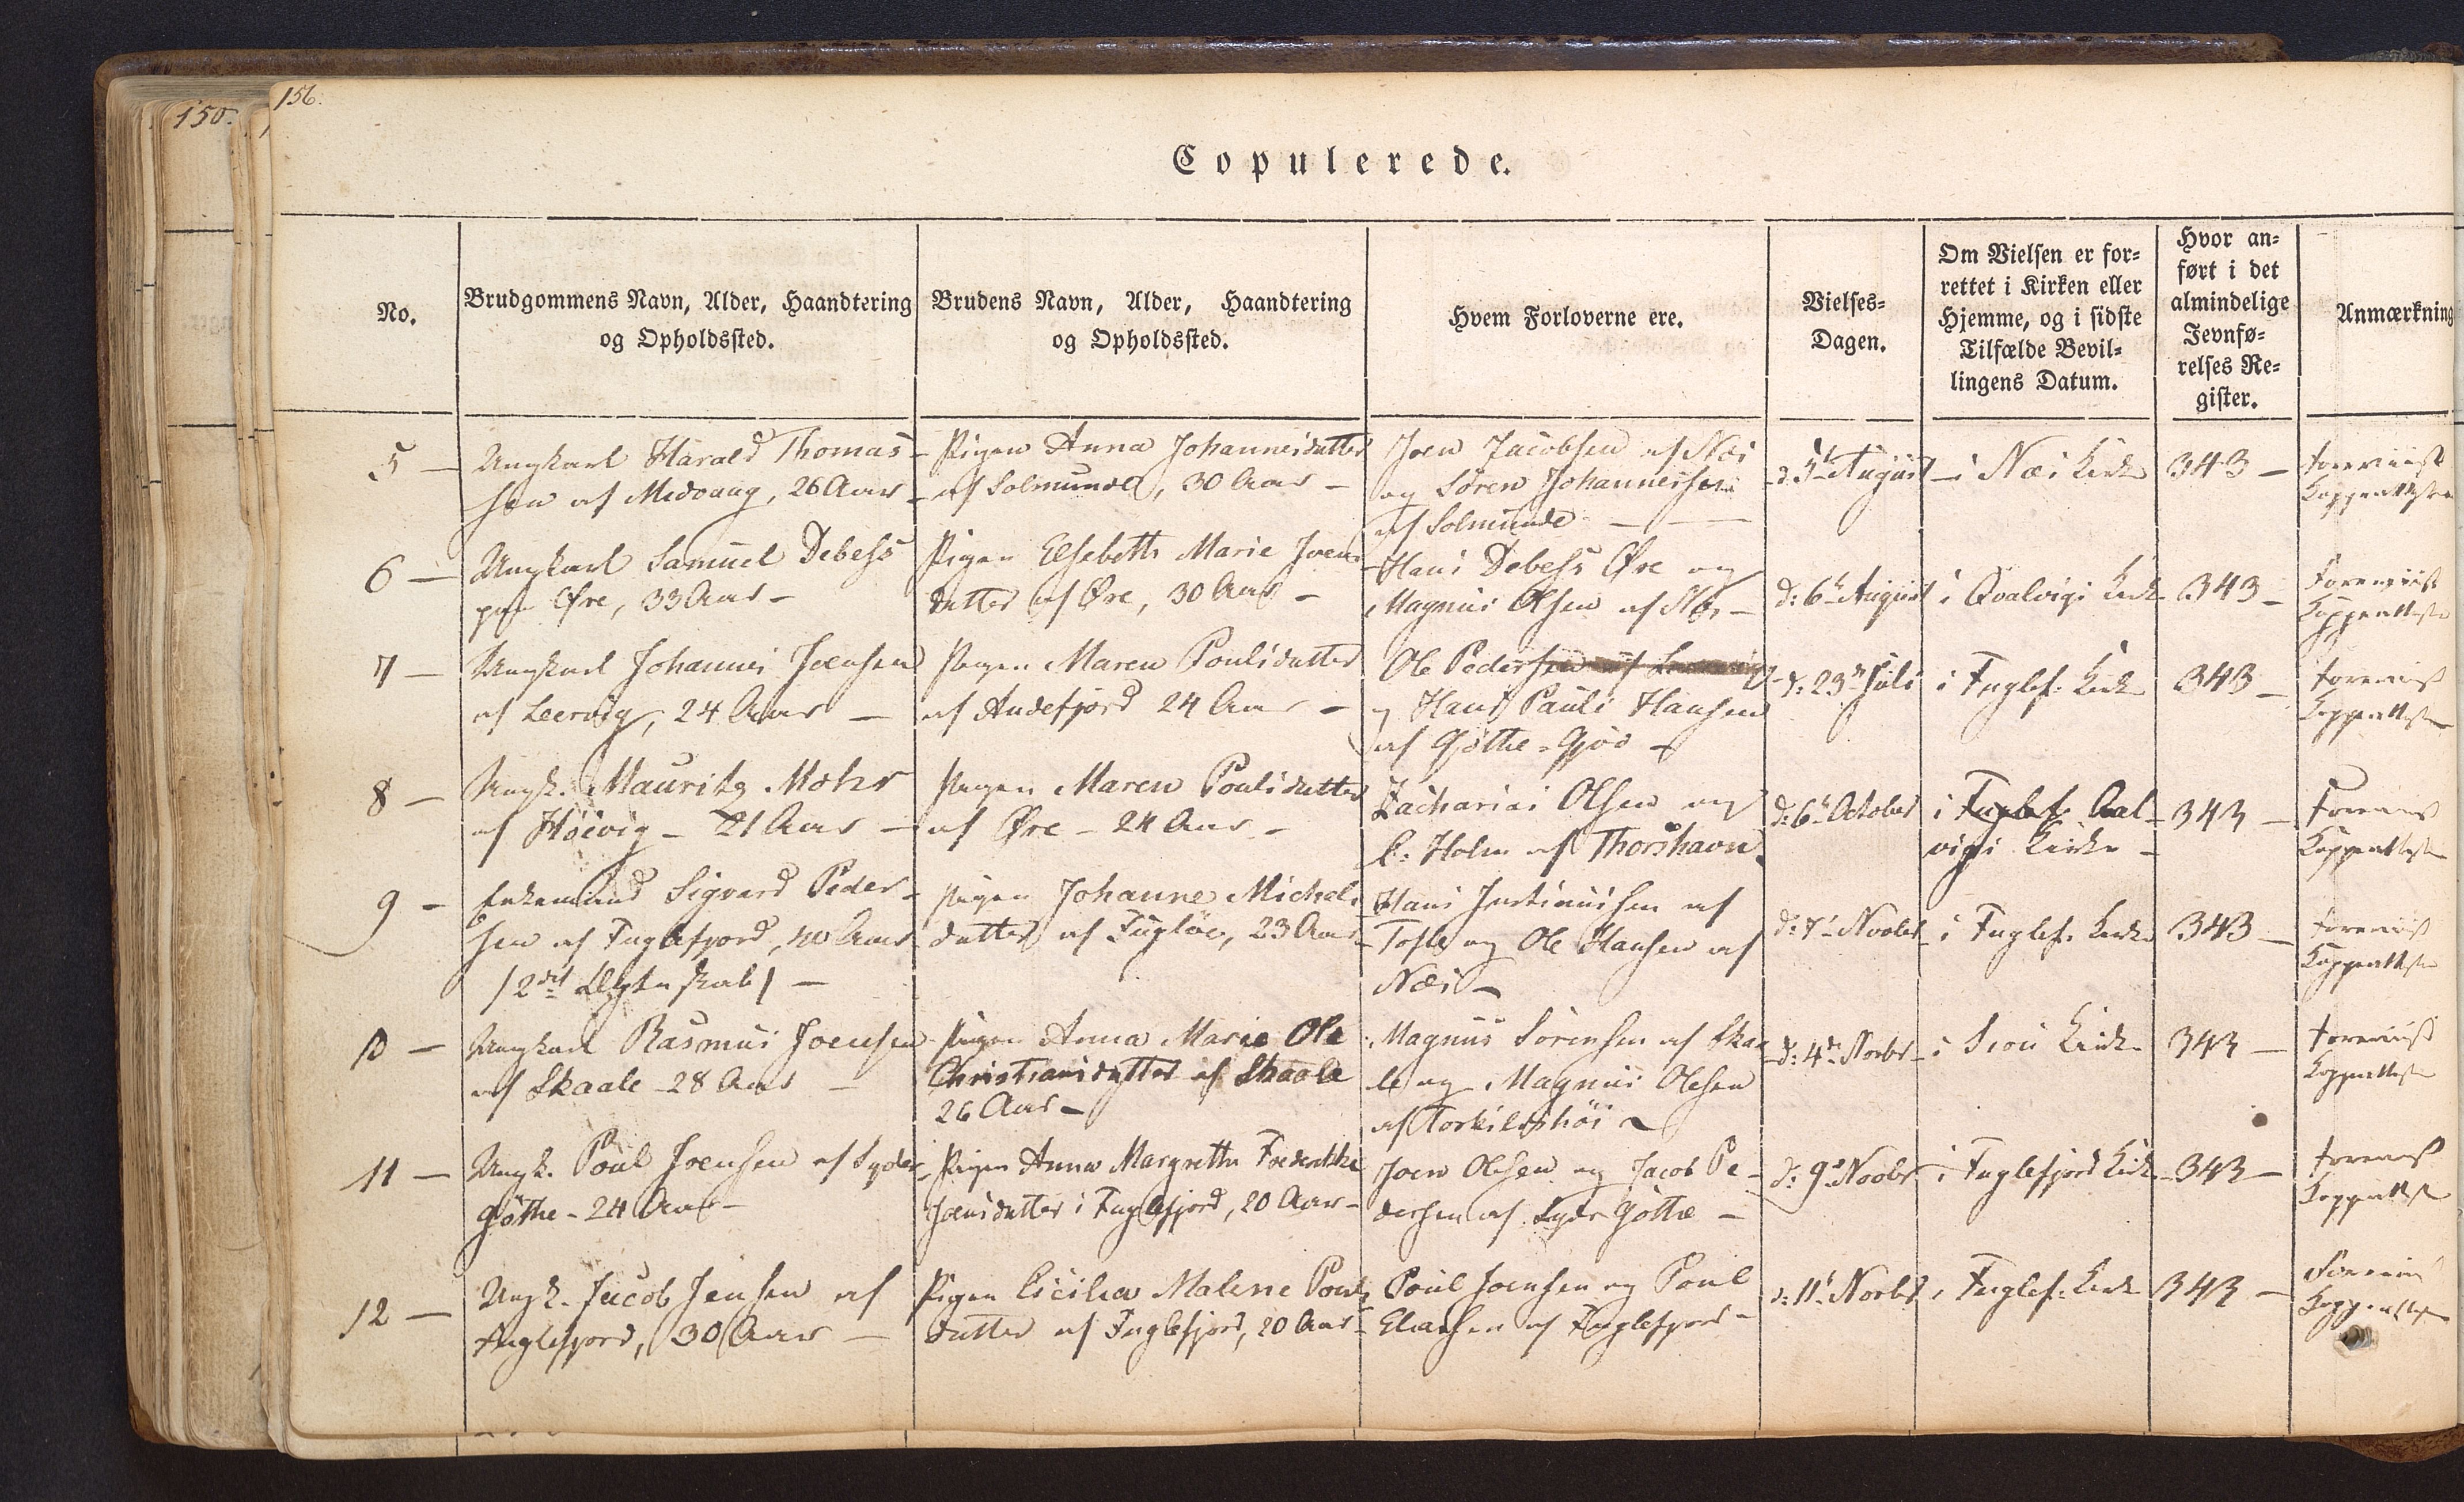 150.
156.
Copulerede.
No.
Brudgommens Navn, Alder, Haandtering
og Opholdssted.
Brudens Navn, Alder, Haandtering
og Opholdssted.
Hvem Forloverne ere.
Vielses-
Dagen.
Om Vielsen er for-
rettet i Kirken eller
Hjemme, og i sidste
Tilfælde Bevil-
lingens Datum.
Hvor an-
ført i det
almindelige
Jevnfø-
relses Re-
gister.
Anmærkning
5 —
Ungkarl Harald Thomas-
sen af Midvaag, 26 Aar —
Pigen Anna Johannesdatter
af Solmunde, 30 Aar —
Joen Jacobsen af Næs
og Sören Johannessen
af Solmunde —
d: 5t August
i Næs Kirke
343 —
Foreviist
Koppeattester
6 —
Ungkarl Samuel Debess
paa Øre, 33 Aar —
Pigen Elsebeth Marie Joens
datter af Øre, 30 Aar —
Hans Debess Øre og
Magnus Olsen af
d: 6t August
i Qvalvigs Kirke
343 —
Foreviist
Koppeattester
7 —
Ungkarl Johannes Joensen
af Leervig, 24 Aar —
Pigen Maren Poulsdatter
af Andefjord 24 Aar —
Ole Pedersen af
og Hans Pauli Hansen
af Gøthe-Gjov
d: 23de Juli
i Fuglef: Kirke
343 —
Foreviist
Koppeattester
8 —
Ungk. Mauritz Mohr
af Höivig — 21 Aar —
Pigen Maren Poulsdatter
af Øre — 24 Aar —
Zacharias Olsen og
Holm af Thorshavn
d: 6t October
i Fuglef: Qval-
vigs Kirke —
343 —
Foreviist
Koppeattester
9 —
Enkemand Sigvard Peder-
sen af Fuglefjord, 40 Aar
/2det Ægteskab/ —
Pigen Johanne Michels
datter af Fugløe, 23 Aar
Hans Justinussen af
Tofte og Ole Hansen af
Næs —
i Fuglef: Kirke
343 —
Foreviist
Koppeattester
10 —
Ungkarl Rasmus Joensen
af Skaale — 28 Aar —
Pigen Anna Marie Ole
Christiansdatter af Skaale
26 Aar —
Magnus Sörensen af Skaa
le og Magnus Olesen
af Torkildshöi
d: 4de Novbr
i Kirke
343 —
Foreviist
Koppeattester
11 —
Ungk. Poul Joensen af Syder
Gøthe — 24 Aar —
Pigen Anna Margretha Frederikke
Joensdatter i Fuglefjord, 20 Aar —
Joen Olesen og Jacob Pe-
dersen af Syder Gøthe —
d: 9de Novbr
i Fuglefjord Kirke
343 —
Foreviist
Koppeattester
12 —
Ungk. Jacob Jensen af
Fuglefjord, 30 Aar —
Pigen Cicilia Malene Pouls
datter af Fuglefjord, 20 Aar —
Poul Joensen og Poul
Eliassen af Fuglefjord —
d: 11t Novbr
i Fuglef: Kirke
343 —
Foreviist
Koppeattester